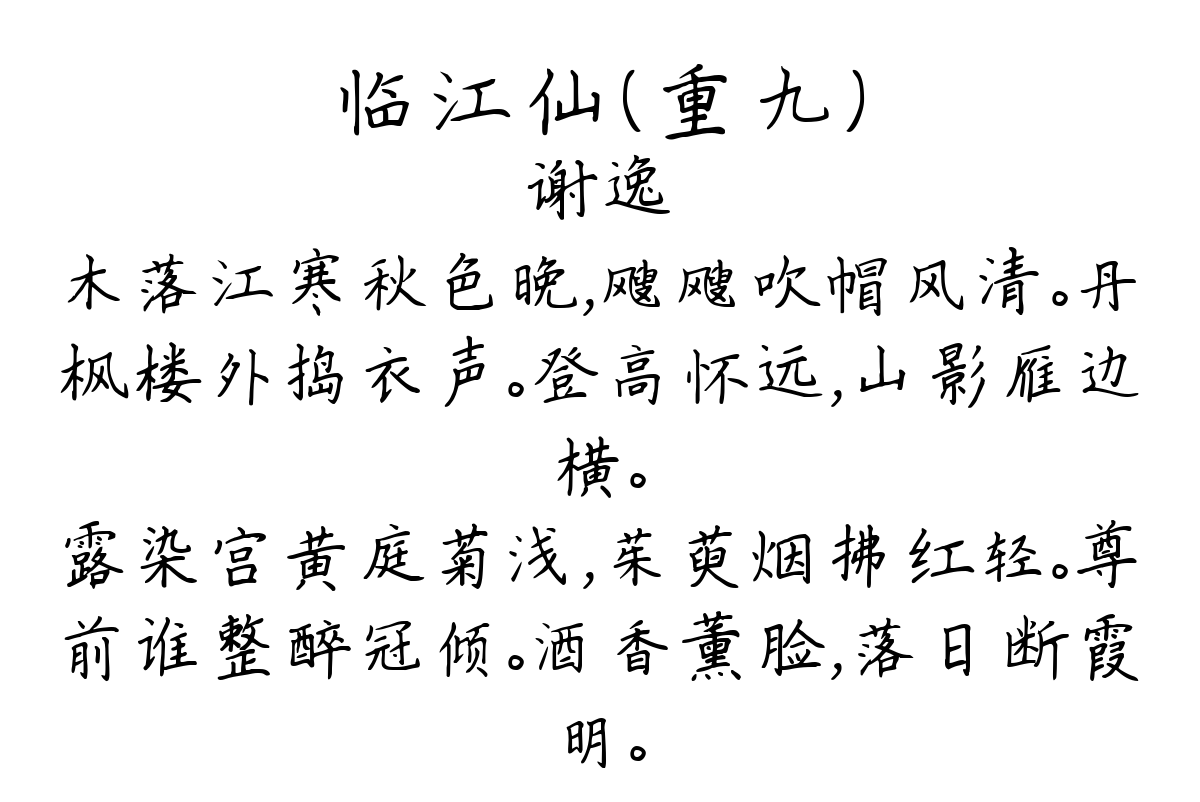 临江仙(重九)
谢逸
木落江寒秋色晚,飕飕吹帽风清。丹
枫楼外捣衣声。登高怀远,山影雁边
横。
露染宫黄庭菊浅,茱萸烟拂红轻。尊
前谁整醉冠倾。酒香薰脸,落日断霞
明。